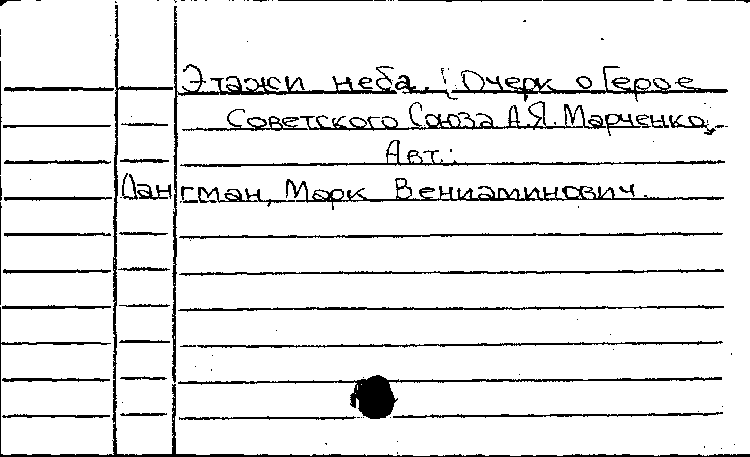 Этажи неба. [Очерк о Герое
Советского Союза А.Я. Марченко]
Авт.:
Лангман, Марк Вениаминович.